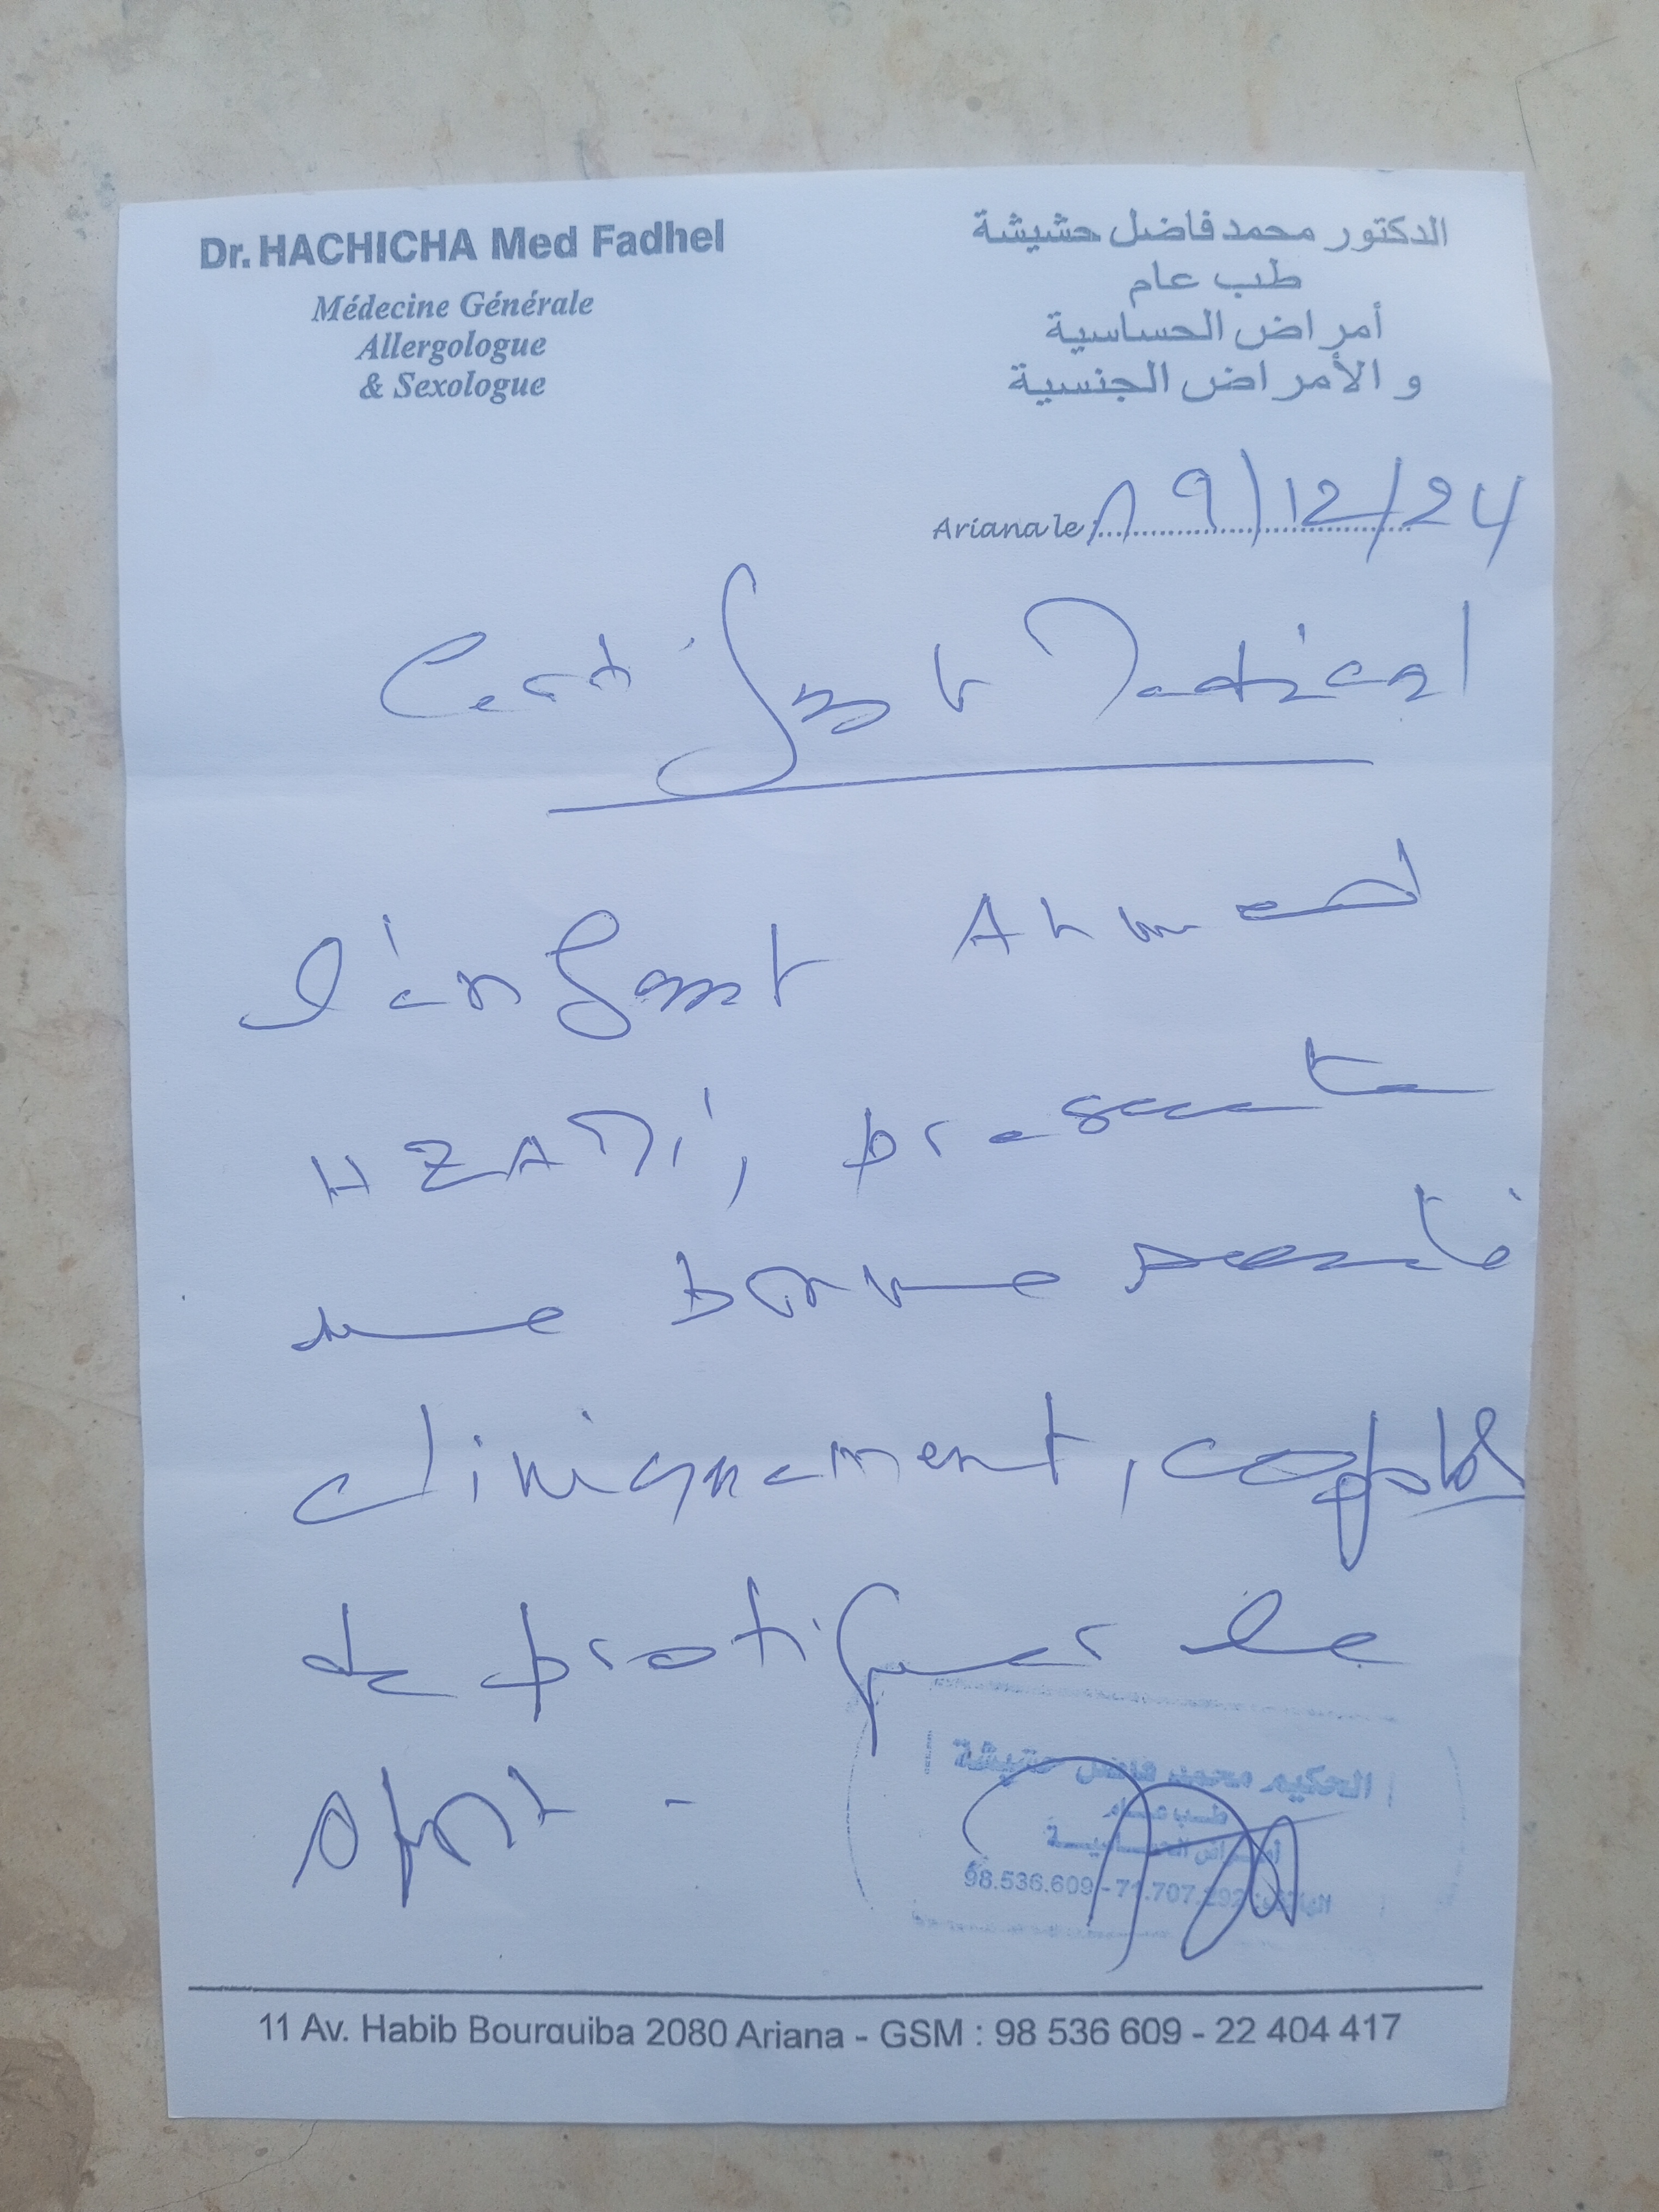 Dr. HACHICHA Med Fadhel
Médecine Générale
Allergologue
& Sexologue
الدكتور محمد فاضل حشيشة
طب عام
أمراض الحساسية
و الأمراض الجنسية
Ariana le 19/12/24
Certificat Medical
l'enfant Ahmed
HZAMi, presente
une Bonne santé
cliniquement, capable
de pratiquer le
sport -
الحكيم محمد فاضل حشيشة
طب عام
أمراض الحساسية
98.536.609 - 71.707.292 :الهاتف
11 Av. Habib Bourguiba 2080 Ariana - GSM : 98 536 609 - 22 404 417